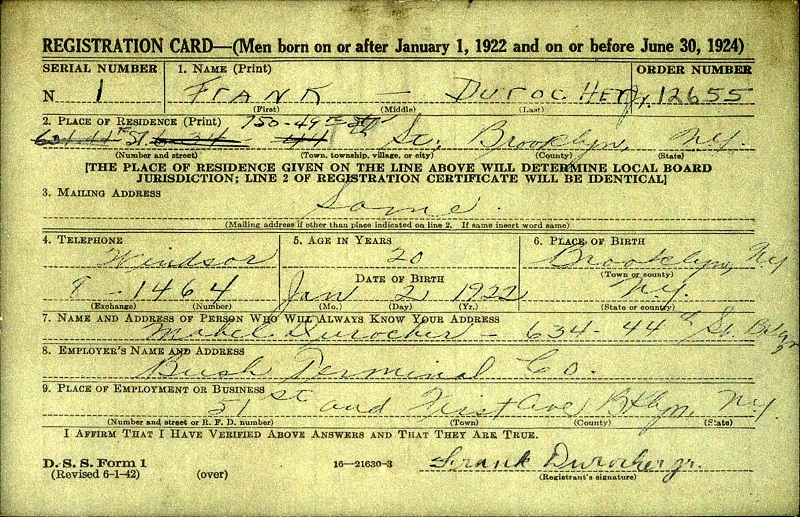 REGISTRATION CARD—(Men born on or after January 1, 1922 and on or before June 30, 1924)
SERIAL NUMBER 1. NAME (Print) ORDER NUMBER
N 1 FRANK — DUROCHER Jr. 12655
(First) (Middle) (Last)
2. PLACE OF RESIDENCE (Print) 750-49th St
634 44th St 6-34 44 St. Brooklyn, N.Y.
(Number and street) (Town, township, village, or city) (County) (State)
[THE PLACE OF RESIDENCE GIVEN ON THE LINE ABOVE WILL DETERMINE LOCAL BOARD
JURISDICTION; LINE 2 OF REGISTRATION CERTIFICATE WILL BE IDENTICAL]
3. MAILING ADDRESS
Same.
(Mailing address if other than place indicated on line 2. If same insert word same)
4. TELEPHONE 5. AGE IN YEARS 6. PLACE OF BIRTH
Windsor 20 Brooklyn, NY
(Town or county)
DATE OF BIRTH
8-1464 Jan 2 1922 N.Y.
(Exchange) (Number) (Mo.) (Day) (Yr.) (State or country)
7. NAME AND ADDRESS OF PERSON WHO WILL ALWAYS KNOW YOUR ADDRESS
Mabel Durocher - 634-44th St. Bklyn
8. EMPLOYER'S NAME AND ADDRESS
Bush Terminal Co.
9. PLACE OF EMPLOYMENT OR BUSINESS
51st and First Ave Bklyn, N.Y.
(Number and street or R. F. D. number) (Town) (County) (State)
I AFFIRM THAT I HAVE VERIFIED ABOVE ANSWERS AND THAT THEY ARE TRUE.
D. S. S. Form 1
(Revised 6-1-42) (over) 16—21630-3 Frank Durocher jr.
(Registrant's signature)